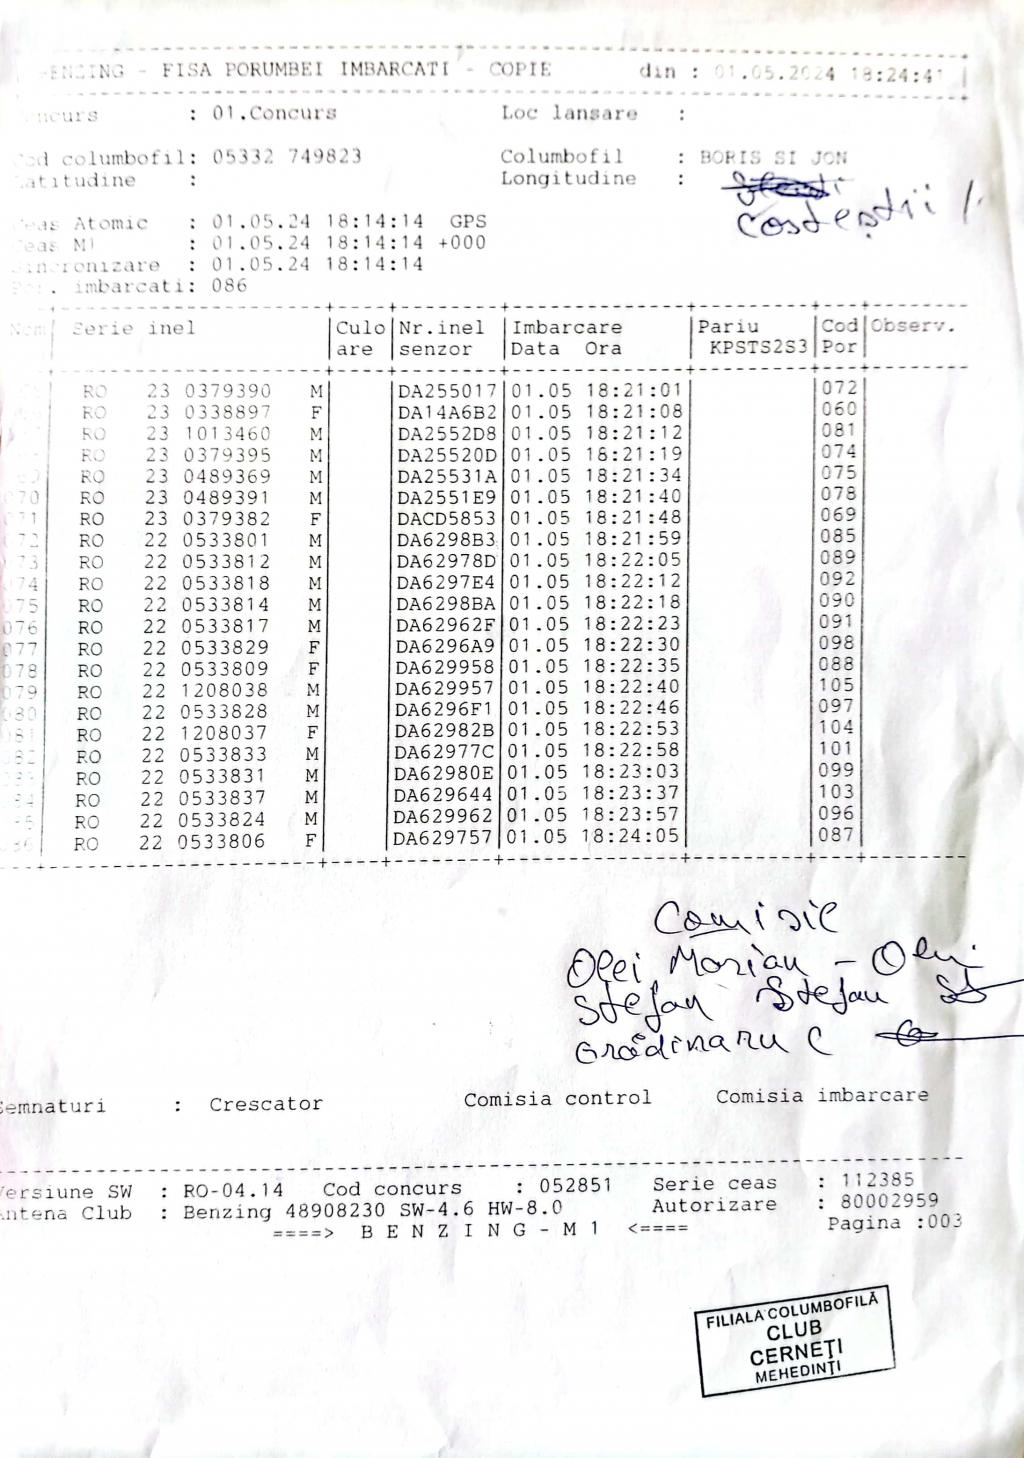 BENZING - FISA PORUMBEI IMBARCATI - COPIE din : 01.05.2024 18:24:41
Concurs : 01.Concurs Loc lansare :
Cod columbofil: 05332 749823 Columbofil : BORIS SI JON
Latitudine : Longitudine :
Costeștii
Ceas Atomic : 01.05.24 18:14:14 GPS
Ceas M1 : 01.05.24 18:14:14 +000
Sincronizare : 01.05.24 18:14:14
Por. imbarcati: 086
Nem Serie inel Culo Nr.inel Imbarcare Pariu Cod Observ.
are senzor Data Ora KPSTS2S3 Por
RO 23 0379390 M DA255017 01.05 18:21:01 072
RO 23 0338897 F DA14A6B2 01.05 18:21:08 060
RO 23 1013460 M DA2552D8 01.05 18:21:12 081
RO 23 0379395 M DA25520D 01.05 18:21:19 074
RO 23 0489369 M DA25531A 01.05 18:21:34 075
070 RO 23 0489391 M DA2551E9 01.05 18:21:40 078
071 RO 23 0379382 F DACD5853 01.05 18:21:48 069
072 RO 22 0533801 M DA6298B3 01.05 18:21:59 085
073 RO 22 0533812 M DA62978D 01.05 18:22:05 089
074 RO 22 0533818 M DA6297E4 01.05 18:22:12 092
075 RO 22 0533814 M DA6298BA 01.05 18:22:18 090
076 RO 22 0533817 M DA62962F 01.05 18:22:23 091
077 RO 22 0533829 F DA6296A9 01.05 18:22:30 098
078 RO 22 0533809 F DA629958 01.05 18:22:35 088
079 RO 22 1208038 M DA629957 01.05 18:22:40 105
080 RO 22 0533828 M DA6296F1 01.05 18:22:46 097
081 RO 22 1208037 F DA62982B 01.05 18:22:53 104
082 RO 22 0533833 M DA62977C 01.05 18:22:58 101
RO 22 0533831 M DA62980E 01.05 18:23:03 099
RO 22 0533837 M DA629644 01.05 18:23:37 103
RO 22 0533824 M DA629962 01.05 18:23:57 096
RO 22 0533806 F DA629757 01.05 18:24:05 087
Comisie
Olei Marian - Olei
Stefan Stefan
Grădinaru C
Semnaturi : Crescator Comisia control Comisia imbarcare
Versiune SW : RO-04.14 Cod concurs : 052851 Serie ceas : 112385
Antena Club : Benzing 48908230 SW-4.6 HW-8.0 Autorizare : 80002959
====> B E N Z I N G - M 1 <==== Pagina :003
FILIALA COLUMBOFILĂ
CLUB
CERNEȚI
MEHEDINȚI